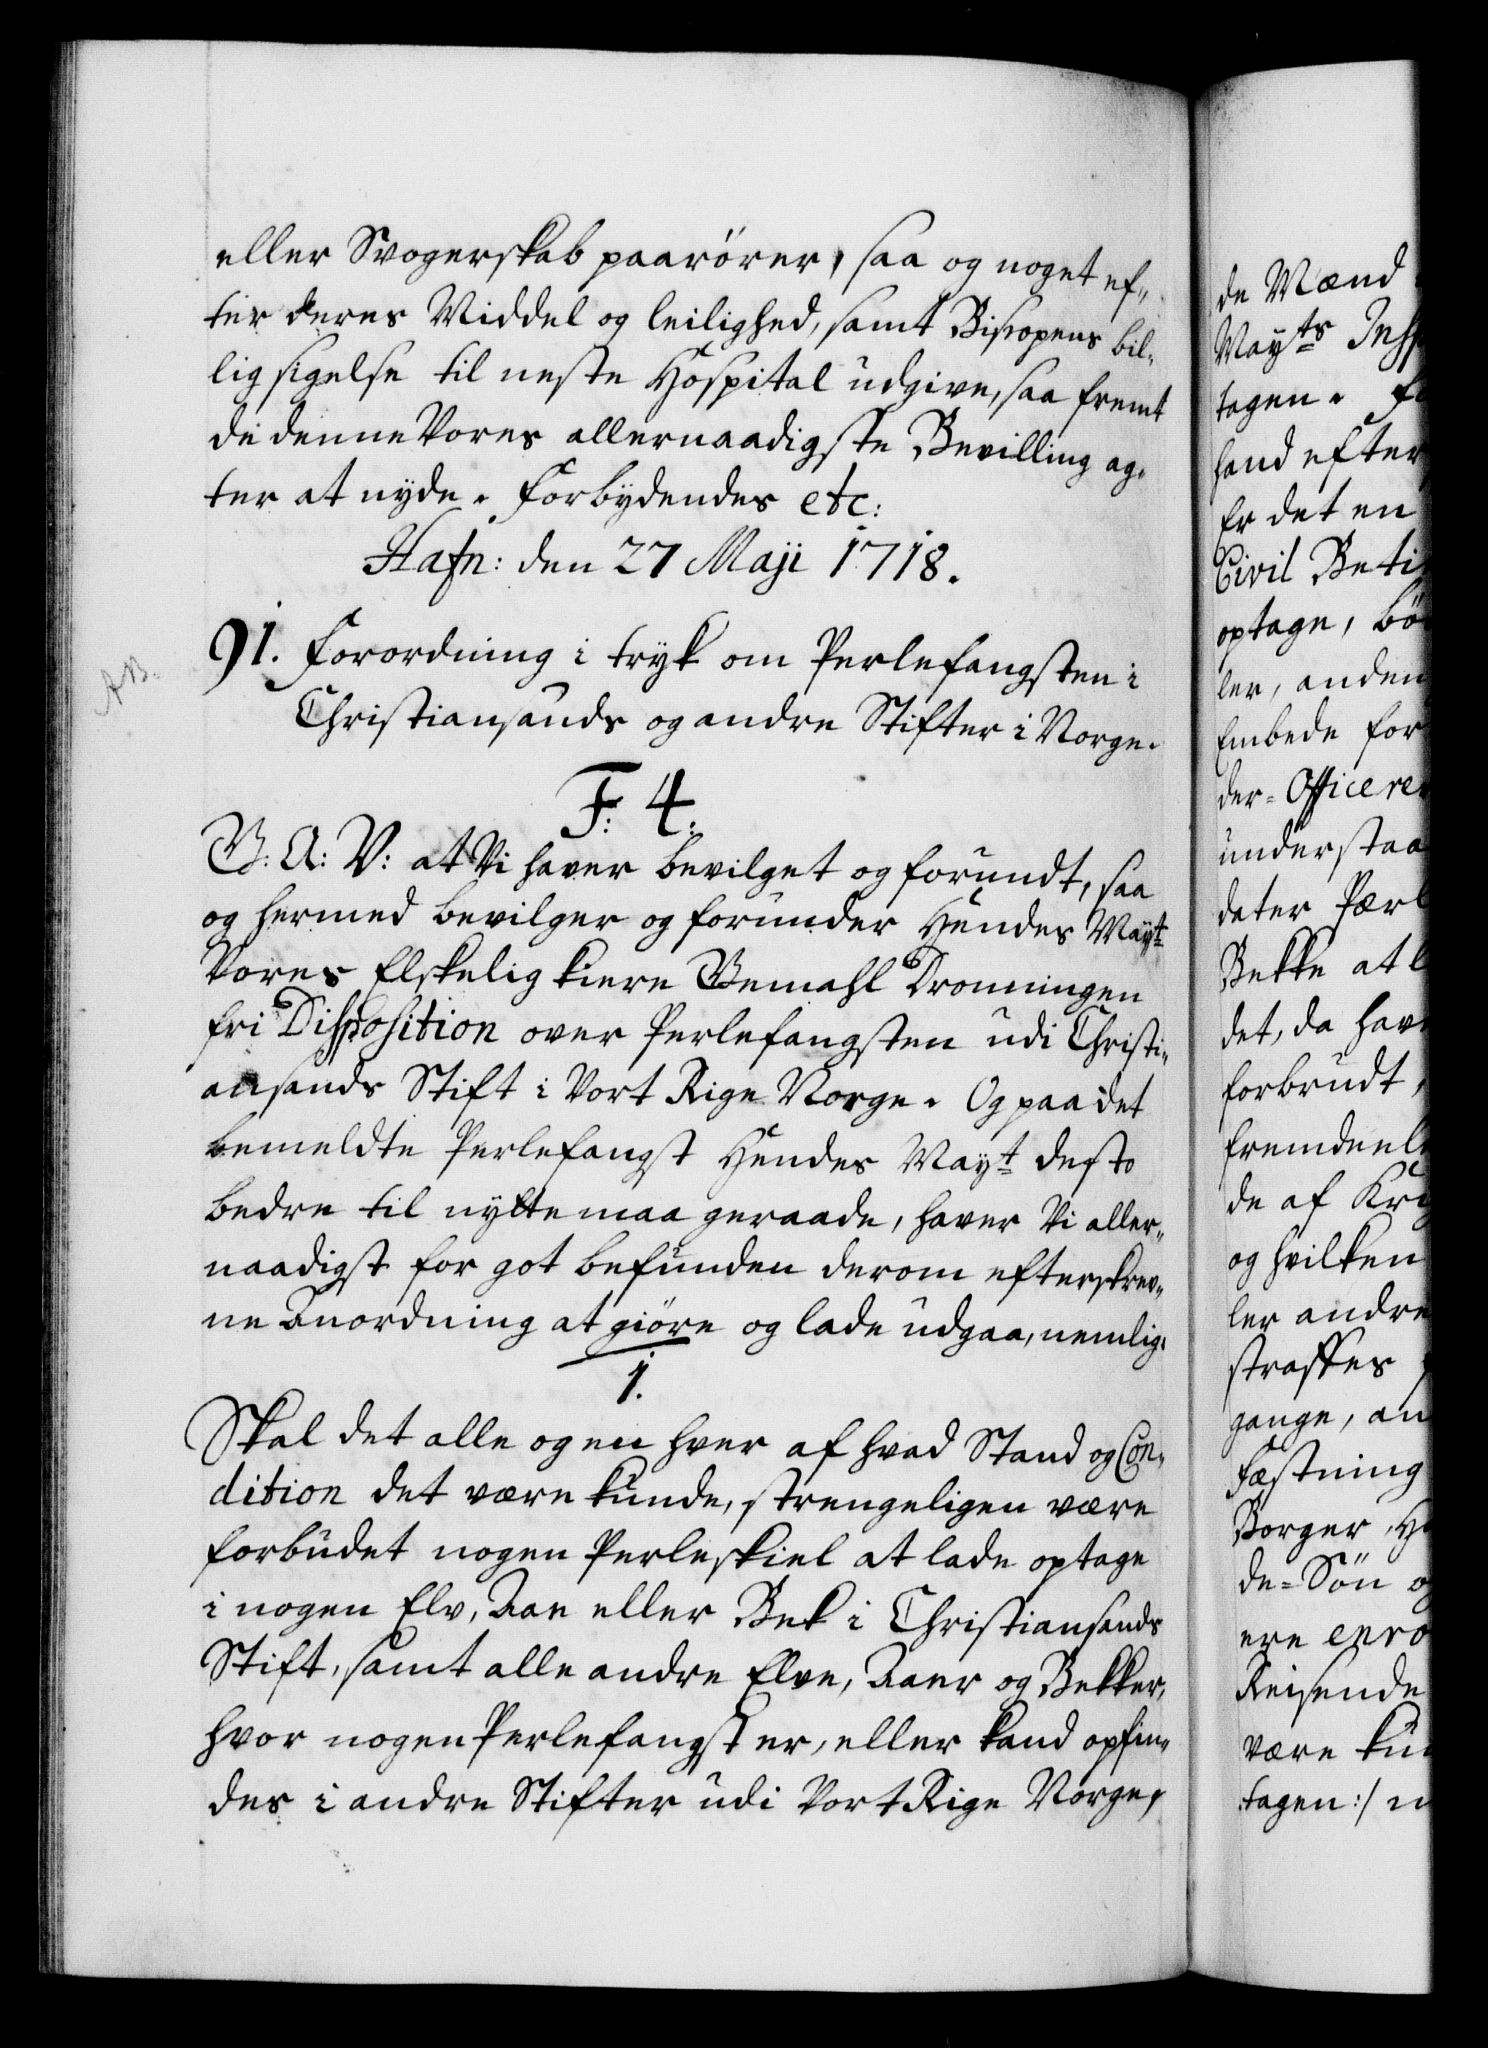 eller Svogerskab paarörer, saa og noget ef„
ter deres Middel og leilighed, samt Bispens bil„
lig sigelse til neste Hospital udgive, saa fremt
de denne Vores allernaadigste Bevilling ag„
ter at nyde. Forbydendes etc:
Hafn: den 27 Maji 1718.
91. Forordning i tryk om Perlefangsten i
AB.
Christiansands og andre Stifter i Norge.
F: 4.
G: A: V: at Vi haver bevilget og forundt, saa
og hermed bevilger og forunder Hendes Mayt
Vores Elskelig kiere Gemahl Dronningen
fri Disposition over Perlefangsten udi Christi„
ansands Stift i Vort Rige Norge. Og paa det
bemeldte Perlefangst Hendes Mayt desto
bedre til nytte maa geraade, haver Vi aller„
naadigst for got befunden derom efterskrev„
ne Anordning at giöre og lade udgaa, nemlig.
1.
Skal det alle og en hver af hvad Stand og Con„
dition det være kunde, strengeligen være
forbudet nogen Perleskiel at lade optage
i nogen Elv, Aae eller Bek i Christiansands
Stift, samt alle andre Elve, Aaer og Bekker,
hvor nogen Perlefangst er, eller kand opfin„
des i andre Stifter udi Vort Rige Norge,
de Mænd
Mayts Insp
tagen.
hand efter
Er det en
Civil Beti
optage, bö
ler, anden
Embede for
der-Officerer
understaa
dater Pærl
Bekke at l
det, da hav
forbrudt,
fremdeel
de af Kri
og hvilken
ler andre
straffes
gange, an
Fæstning
Borger, H
de-Sön o
ere enro
Reisende
være kun
tagen:/ n